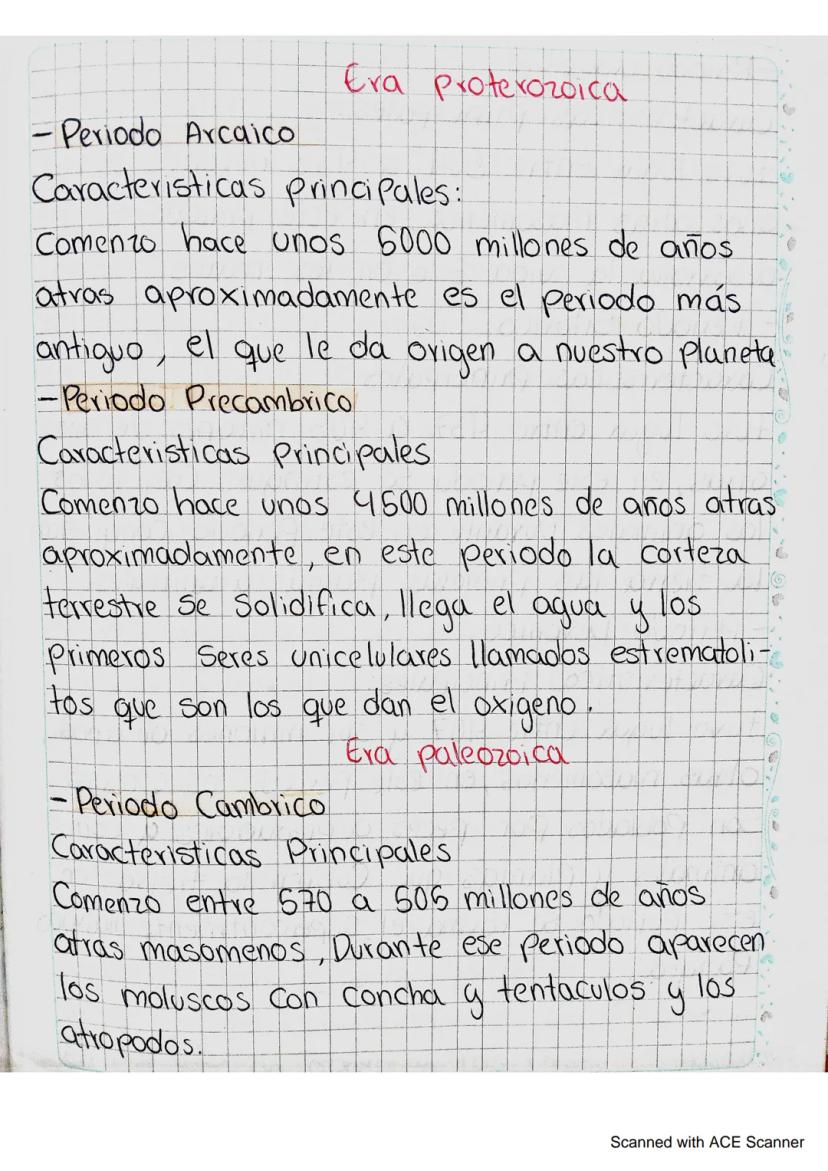 Era proterozoica
- Periodo Arcaico
Caracteristicas principales:
Comenzo hace unos 5000 millones de años
atras aproximadamente es el periodo más
antiguo, el que le da origen a nuestro planeta
- Periodo Precambrico
Caracteristicas Principales
Comenzo hace unos 4500 millones de años atras
aproximadamente, en este periodo la corteza
terrestre se solidifica, llega el agua y los
primeros seres unicelulares llamados estrematoli-
tos que son los que dan el oxigeno.
Era paleozoica
- Periodo Cambrico
Caracteristicas Principales
Comenzo entre 570 a 505 millones de años
atras masomenos, Durante ese periodo aparecen
los moluscos con concha y tentaculos y los
atropodos.
Scanned with ACE Scanner